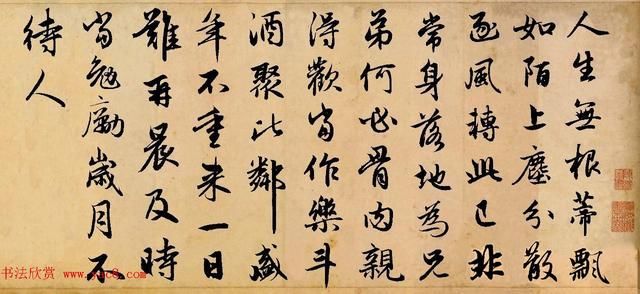 人生無根蒂飄
如陌上塵分散
逐風轉此已非
常身落地為兄
弟何必骨肉親
得歡當作樂斗
酒聚比鄰盛
年不重来一日
難再晨及時
當勉勵歲月不
待人
书法欣赏
www.yac8.com